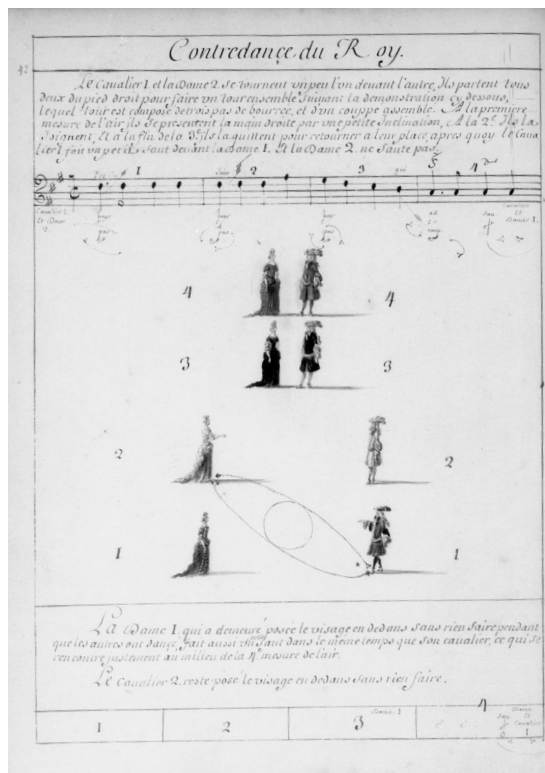 Contredance du Roy.
42
Le Cavalier 1. et la Dame 2. Se tournent un peu l'un devant l'autre, Ils partent tous
deux du pied droit pour faire un tour ensemble Suivant la demonstration cy dessous,
lequel tour est compose de trois pas de bourree, et d'un couppe assemble. A la premiere
mesure de l'air, ils Se presentent la main droite par une petite Inclination, A la 2e. Ils la
Joignent, Et a la fin de la 3e. Ils la quittent pour retourner a leur place, apres quoy le Cava
lier 1. fait un petit Saut devant la Dame 1. Et la Dame 2. ne Saute pas.
1 2 3 4
Cavalier 1.
Et Dame
2.
Cavalier
Et
Dame 1.
4 4
3 3
2 2
1 1
La Dame 1. qui a demeuré posée le visage en dedans Sans rien faire pendant
que les autres ont dancé, fait aussi un Saut dans le même temps que Son cavalier, ce qui se
rencontre justement au milieu de la 4e. mesure de l'air.
Le Cavalier 2. reste posé le visage en dedans Sans rien faire.
1 2 3 4
Cavalier
1